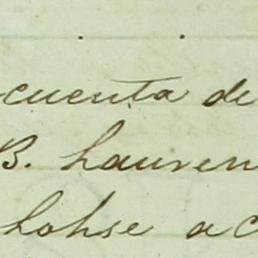 cuenta de
B. Lauren
Lohse ac